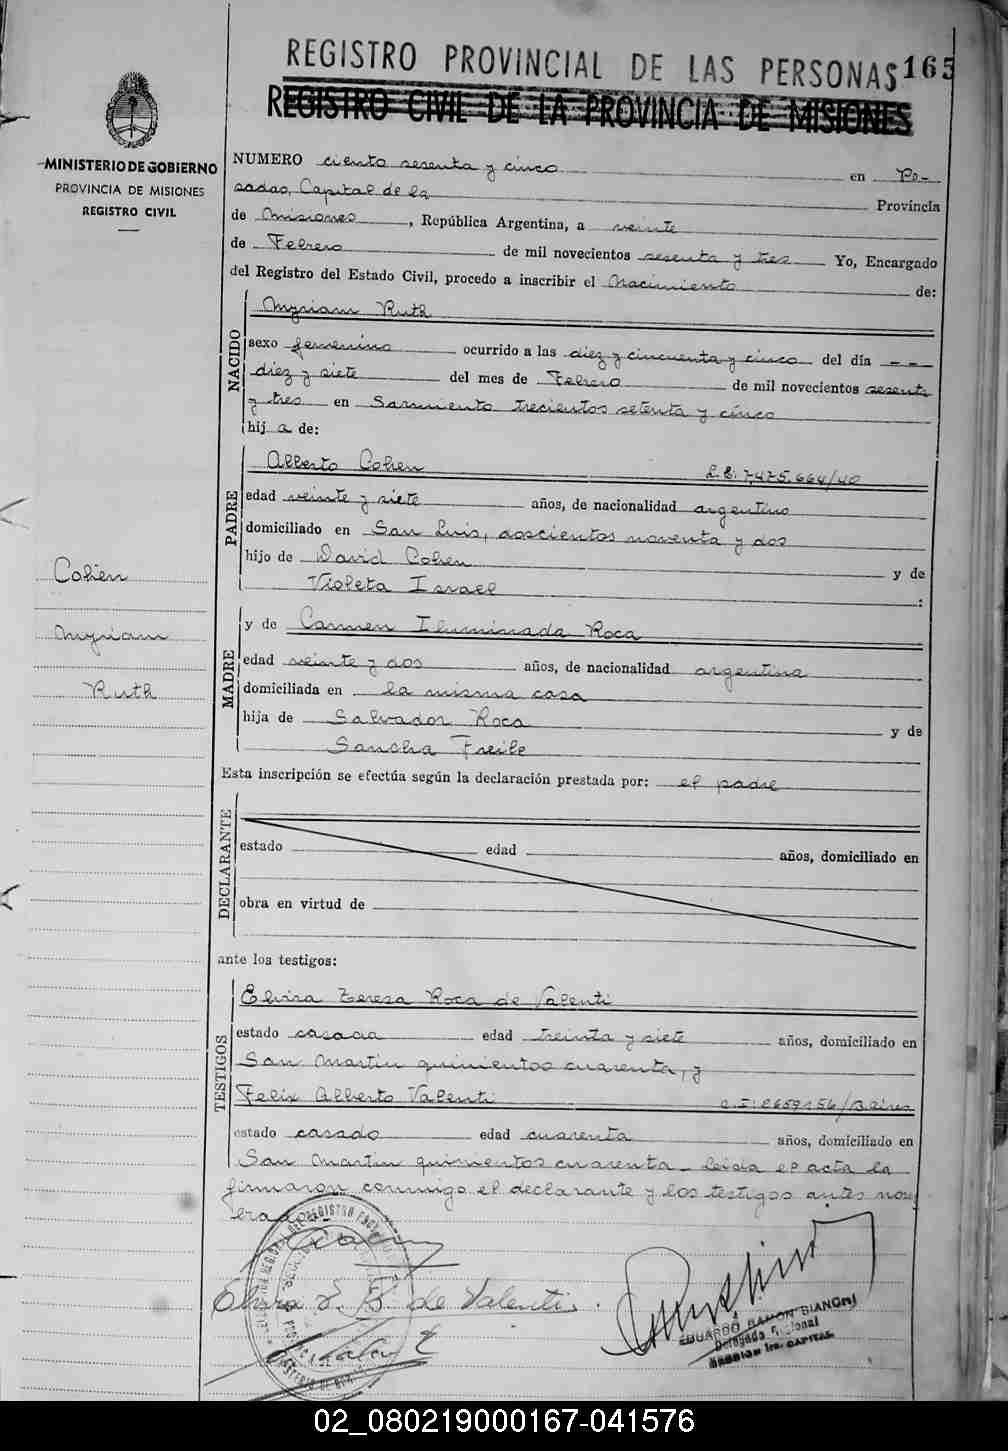 REGISTRO PROVINCIAL DE LAS PERSONAS 165
REGISTRO CIVIL DE LA PROVINCIA DE MISIONES
MINISTERIO DE GOBIERNO
PROVINCIA DE MISIONES
REGISTRO CIVIL
NUMERO ciento sesenta y cinco en Po-
sadas, Capital de la Provincia
de Misiones, República Argentina, a veinte
de Febrero de mil novecientos sesenta y tres Yo, Encargado
del Registro del Estado Civil, procedo a inscribir el Nacimiento de:
NACIDO
Myriam Ruth
sexo femenino ocurrido a las diez y cincuenta y cinco del día - - -
diez y siete del mes de Febrero de mil novecientos sesenta
y tres en Sarmiento trecientos setenta y cinco
hij a de:
PADRE
Alberto Cohen L.E. 7.475.664/40
edad veinte y siete años, de nacionalidad argentino
domiciliado en San Luis, doscientos noventa y dos
hijo de David Cohen y de
Violeta Israel :
Cohen
Myriam
Ruth
MADRE
y de Carmen Iluminada Roca
edad veinte y dos años, de nacionalidad argentina
domiciliada en la misma casa
hija de Salvador Roca y de
Sancha Freile
Esta inscripción se efectúa según la declaración prestada por: el padre
DECLARANTE
estado edad años, domiciliado en
obra en virtud de
ante los testigos:
TESTIGOS
Elvira Teresa Roca de Valenti
estado casada edad treinta y siete años, domiciliado en
San Martin quinientos cuarenta, y
Felix Alberto Valenti C.I: 2659156/B. Aires
estado casado edad cuarenta años, domiciliado en
San Martin quinientos cuarenta_ Leida el acta la
firmaron conmigo el declarante y los testigos antes nom
erados
Elvira T. R. de Valenti.
EDUARDO RAMON BIANCHI
Delegado Regional
SECCION 1ra. CAPITAL
02_080219000167-041576